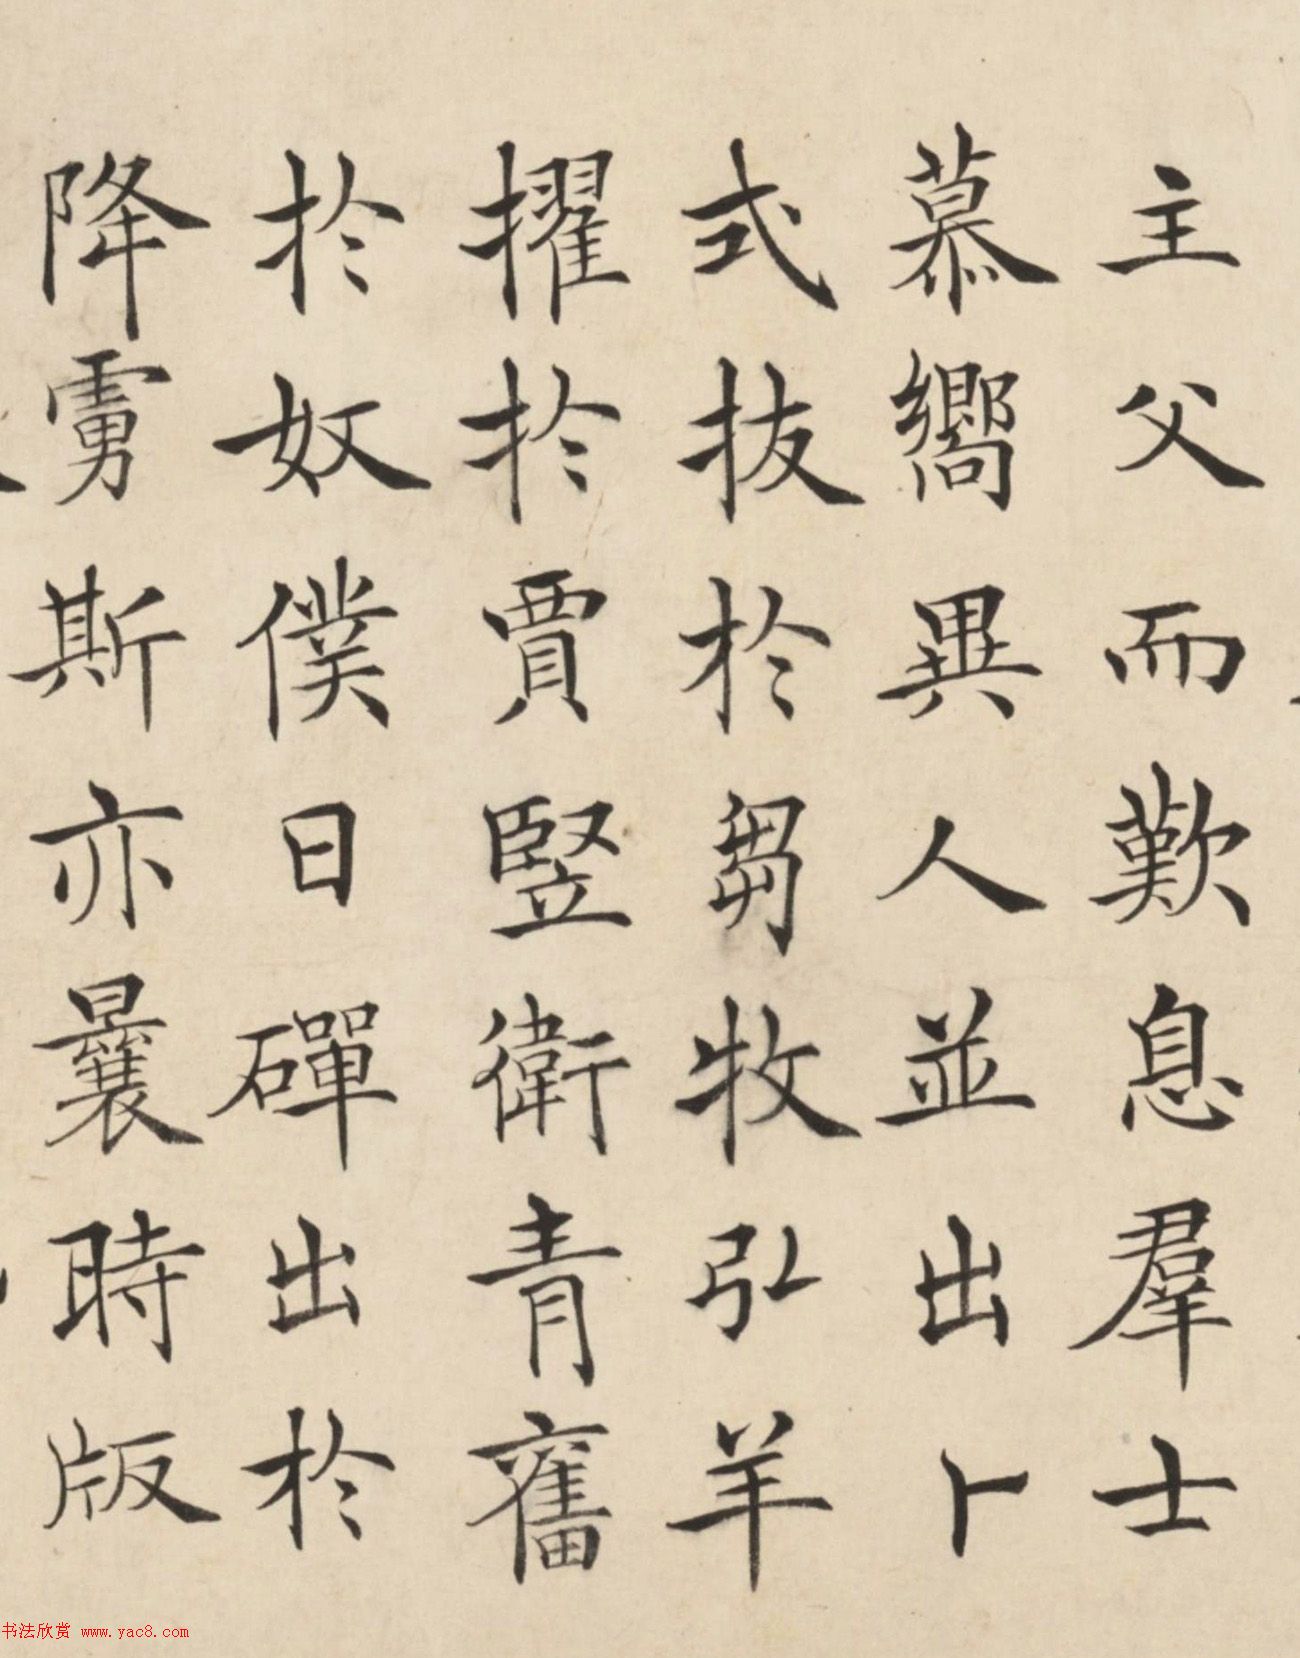 主父而歎息羣士
慕嚮異人並出卜
式拔於芻牧弘羊
擢於賈豎衛青奮
於奴僕日磾出於
降虜斯亦曩時版
书法欣赏 www.yac8.com